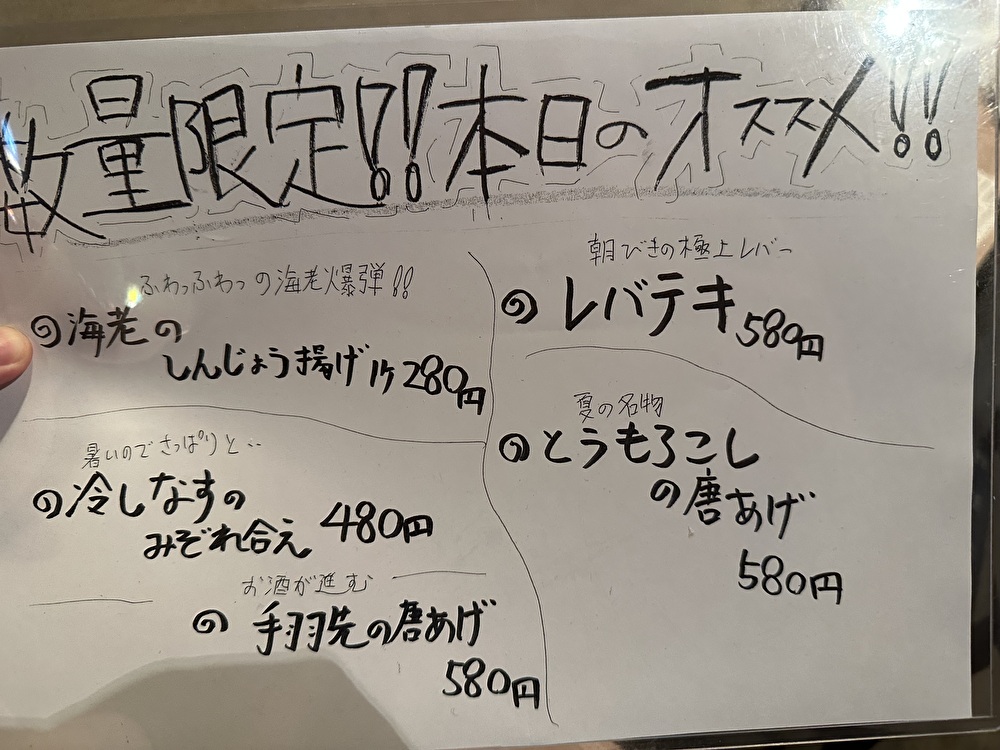 数量限定!!本日のオススメ!!
ふわっふわっの海老爆弾!!
海老の
しんじょう揚げ1ケ280円
暑いのでさっぱりと‥
冷しなすの
みぞれ合え 480円
お酒が進む
手羽先の唐あげ
580円
朝びきの極上レバー
レバテキ 580円
夏の名物
とうもろこし
の唐あげ
580円